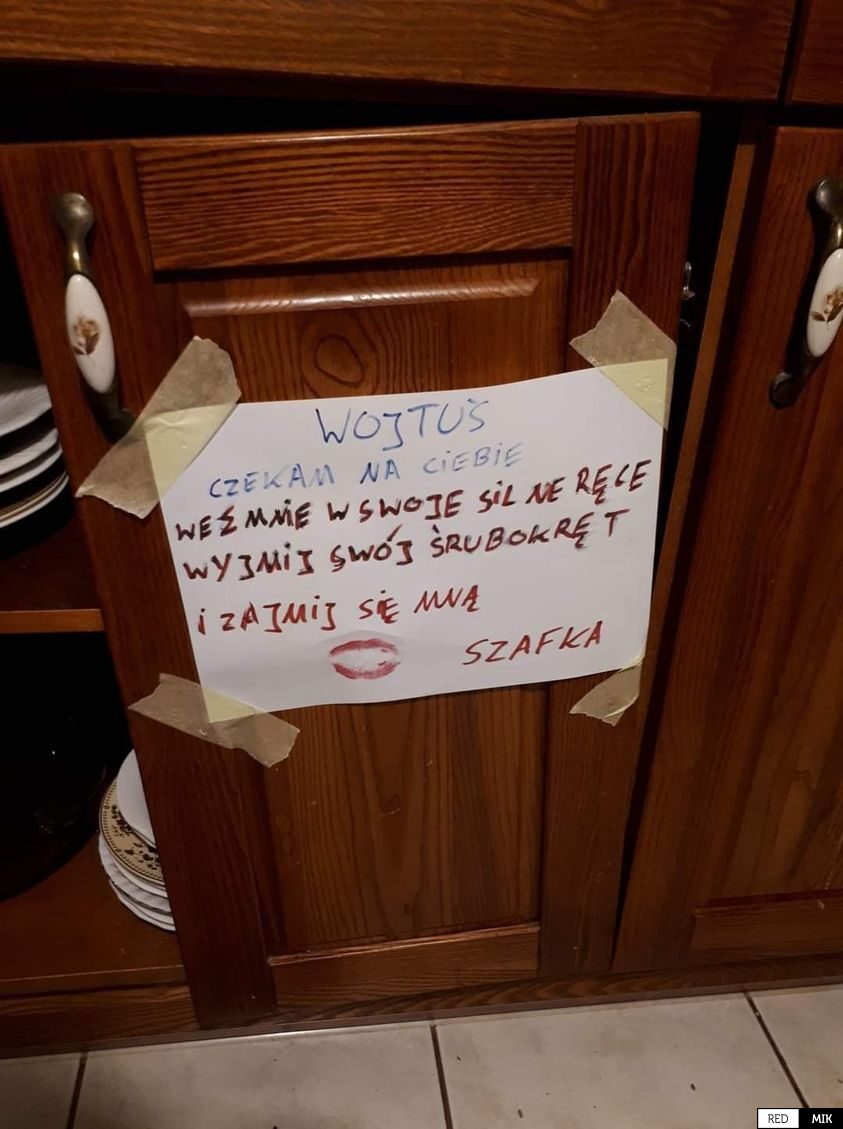 WOJTUŚ
CZEKAM NA CIEBIE
WEŹ MNIE W SWOJE SILNE RĘCE
WYJMIJ SWÓJ ŚRUBOKRĘT
I ZAJMIJ SIĘ MNĄ
SZAFKA
RED MIK